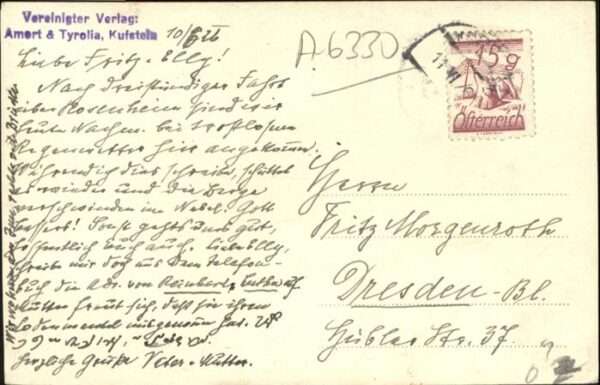 Vereinigter Verlag:
Amort & Tyrolia, Kufstein
10/6 26
A.6330
15 g
Österreich
Liebe Fritz + Elly!
Nach dreistündiger Fahrt
über Rosenheim sind wir
heute Nachm. bei trostlosem
Regenwetter hier angekommen.
Während ich dies schreibe, schüttet
es wieder und die Berge
verschwinden im Nebel. Gott
besser's! Sonst gehts uns gut,
hoffentlich Euch auch. Liebe Elly,
schreibe mir doch aus dem Telefon-
buch die Adr. von
Mutter freut sich, daß sie ihren
Lodenmantel mitgenommen hat.
Herzliche Grüße Vater + Mutter.
Herrn
Fritz Morgenroth
Dresden-Bl.
Hübler Str. 37.